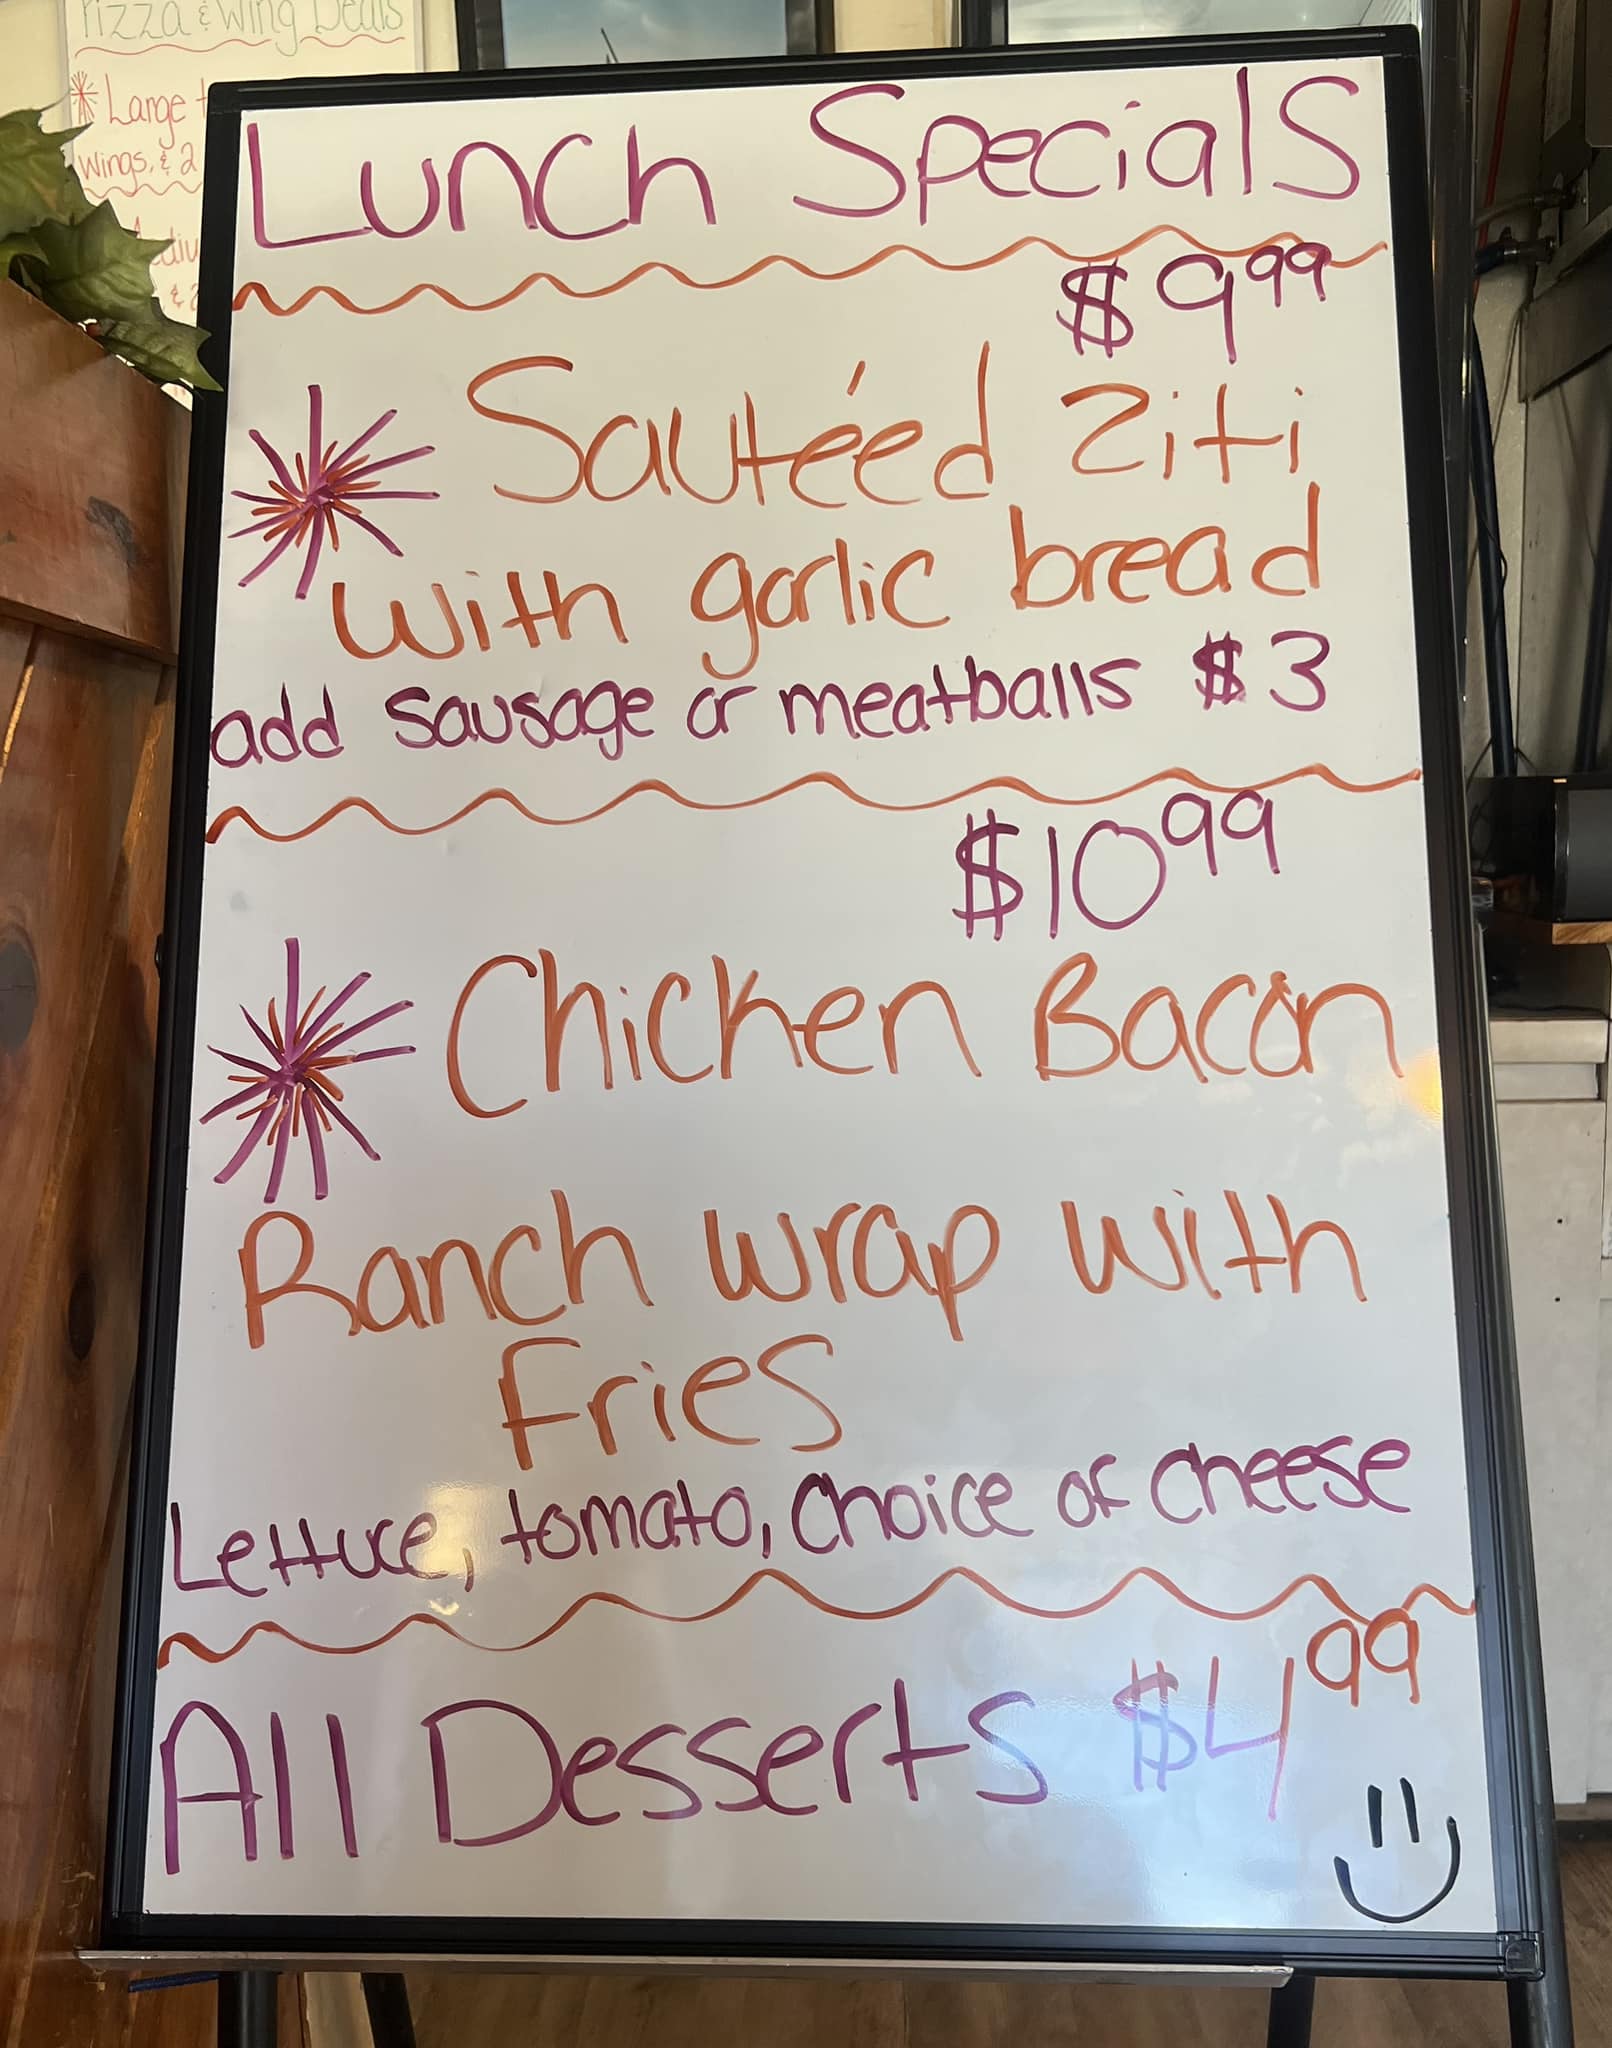 Pizza & Wing Deals
Large
Wings, & 2
Lunch Specials
$9.99
Sautéed Ziti
with garlic bread
add sausage or meatballs $3
$10.99
Chicken Bacon
Ranch wrap with
Fries
Lettuce, tomato, Choice of Cheese
All Desserts $4.99